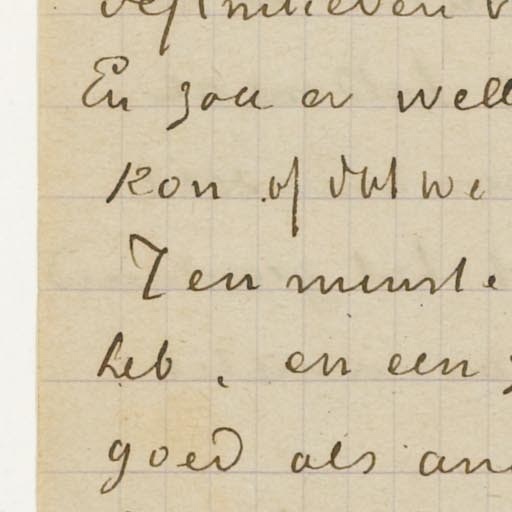 En zou er well
kon of dat we
Ten minste
heb, en een
goed als an